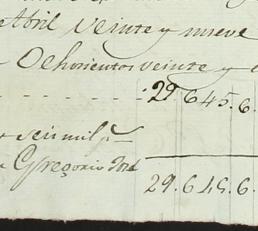 Abril veinte y nueve
Ochosientos veinte y
29 . 6 4 5 . 6 .
seis mil p.
Gregorio Jose
29 . 6 4 5 . 6 .